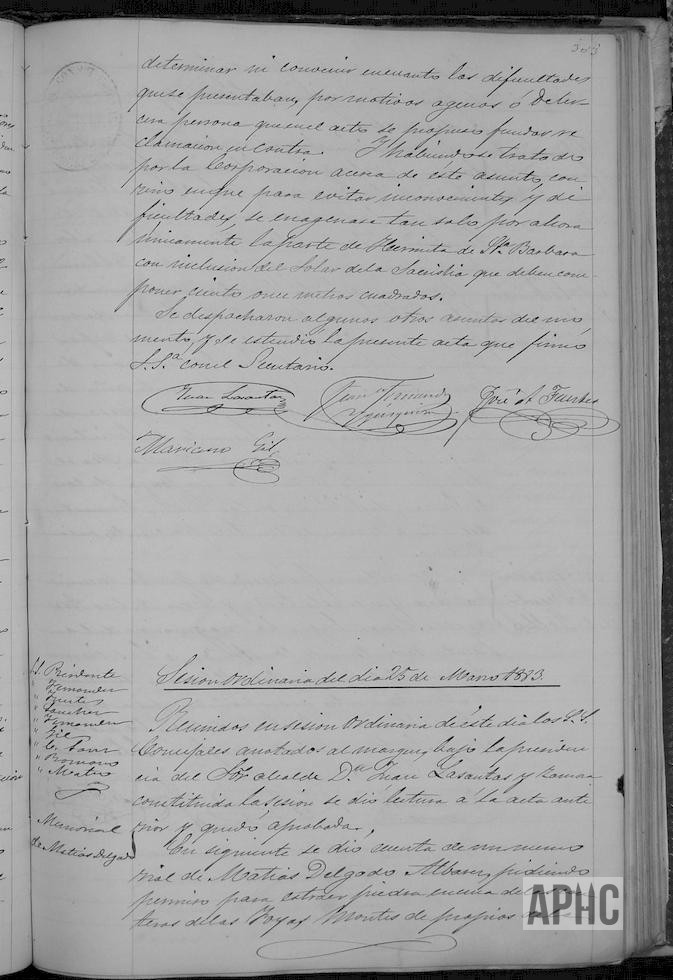 determinar ni convenir en cuanto las dificultades
que se presentaban, por motivos agenos o de ter-
cera persona que en el acto se propuso fundar re
clamacion en contra. Y habiendose tratado
por la Corporacion acerca de este asunto, con
vino en que para evitar inconvenientes y di
ficultades, se enagenase tan solo por ahora
unicamente la parte de Hermita de Sta. Barbara
con inclusion del Solar de la Sacristia que deben com-
poner ciento once metros cuadrados.
Se despacharon algunos otros asuntos del mo
mento, y se estendio la presente acta que firmó
S.Sa. con el Secretario.
Juan Lasantas
Fernandez
José A Fuertes
Mariano Gil
Sesion Ordinaria del dia 25 de Marzo 1883.
S.S. Presidente
" Fernandez
" Fuertes
" Sanchez
" Fernandez
" Gil
" Romano
" Mateo
Reunidos en sesion Ordinaria de éste dia los S.S.
Concejales anotados al margen, bajo la presiden
cia del Sor. Alcalde Dn. Juan Lasantas y
constituida la sesion se dió lectura a la acta ante
rior y quedó aprobada,
Memorial
de Matias Delgado
En siguiente se dio cuenta de un memo
rial de Matias Delgado Albarez, pidiendo
permiso para estraer piedra encima de las
teras de las Hoyas Montes de propios
APHC